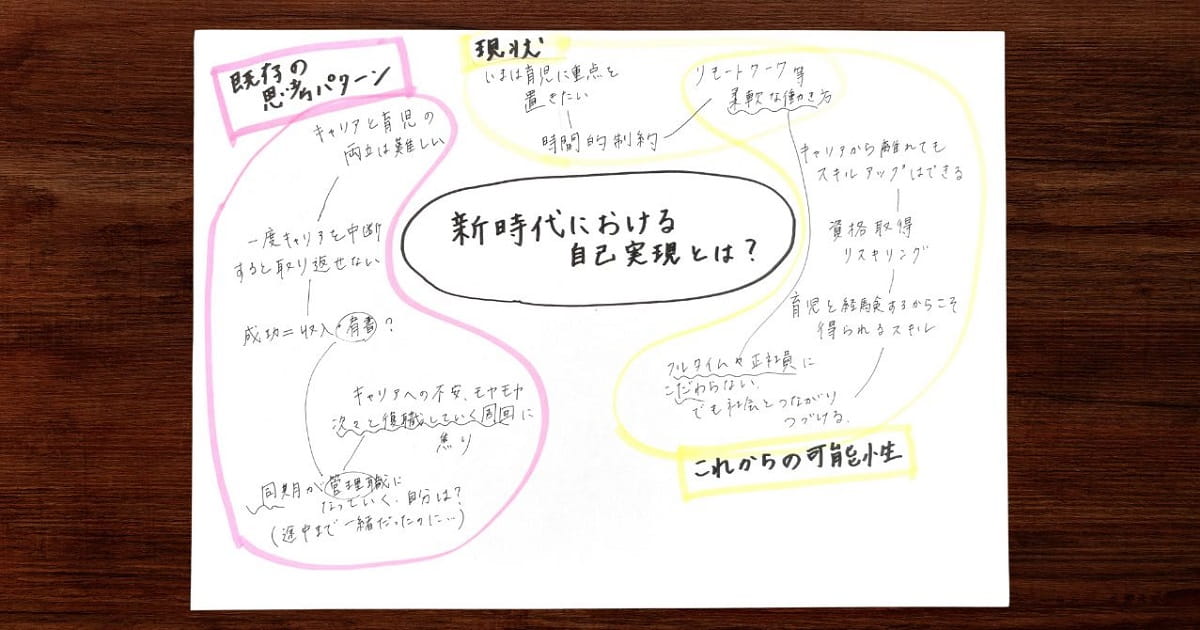 新時代における
自己実現とは?
既存の
思考パターン
キャリアと育児の
両立は難しい
一度キャリアを中断
すると取り返せない
成功=収入・肩書?
キャリアへの不安、モヤモヤ
次々と復職していく周囲に
焦り
同期が管理職に
なっていく、自分は?
(途中まで一緒だったのに…)
現状
いまは育児に重点を
置きたい
時間的制約
リモートワーク等
柔軟な働き方
キャリアから離れても
スキルアップはできる
資格取得
リスキリング
育児を経験するからこそ
得られるスキル
フルタイムや正社員に
こだわらない、
でも社会とつながり
つづける。
これからの可能性